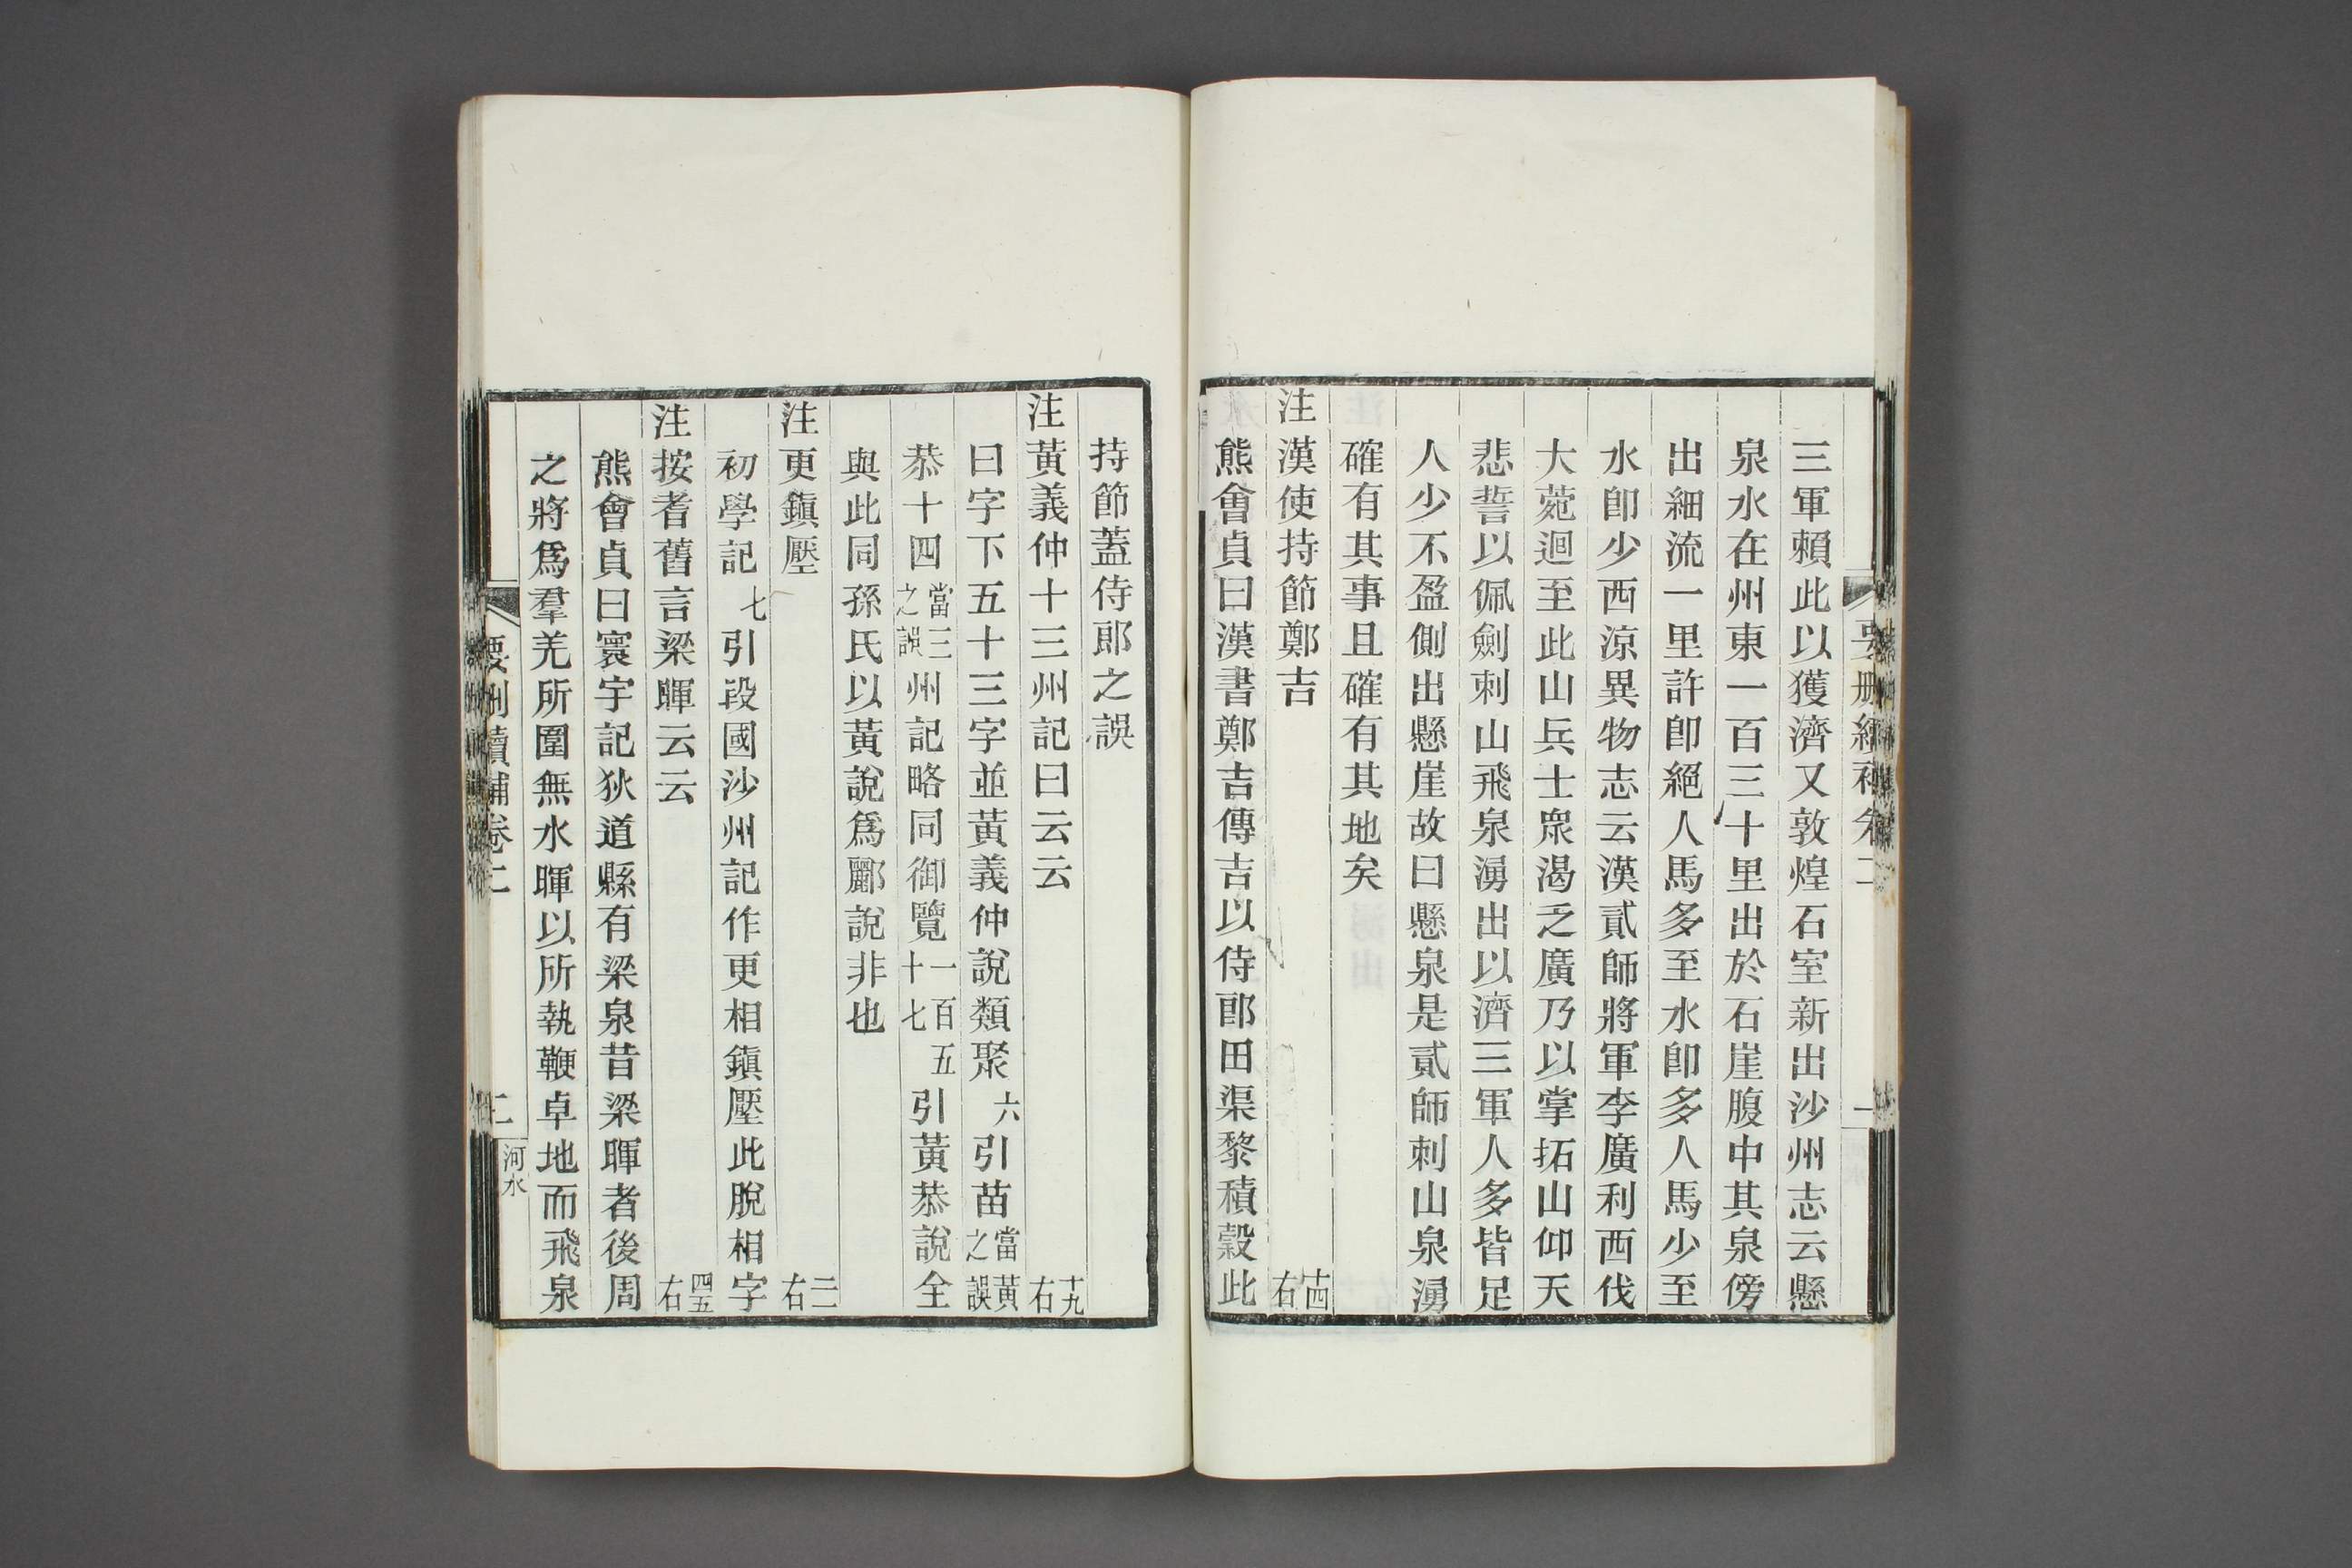 三軍賴此以獲濟又敦煌石室新出沙州志云懸
泉水在州東一百三十里出於石崖腹中其泉傍
出細流一里許卽絕人馬多至水卽多人馬少至
水卽少西涼異物志云漢貳師將軍李廣利西伐
大菀迴至此山兵士眾渴乏廣乃以掌拓山仰天
悲誓以佩劍刺山飛泉湧出以濟三軍人多皆足
人少不盈側出懸崖故曰懸泉是貳師刺山泉湧
確有其事且確有其地矣
注漢使持節鄭吉 十四右
熊會貞曰漢書鄭吉傳吉以侍郎田渠黎積穀此
持節蓋侍郎之誤
注黃義仲十三州記曰云云 十九右
曰字下五十三字並黃義仲說類聚六引苗當黃之誤
恭十四當三之誤州記略同御覽一百五十七引黃恭說全
與此同孫氏以黃說爲酈說非也
注更鎭壓 二二右
初學記七引段國沙州記作更相鎭壓此脫相字
注按耆舊言梁暉云云 四五右
熊會貞曰寰宇記狄道縣有梁泉昔梁暉者後周
之將爲羣羌所圍無水暉以所執鞭卓地而飛泉
要刪續補卷二
二
河水